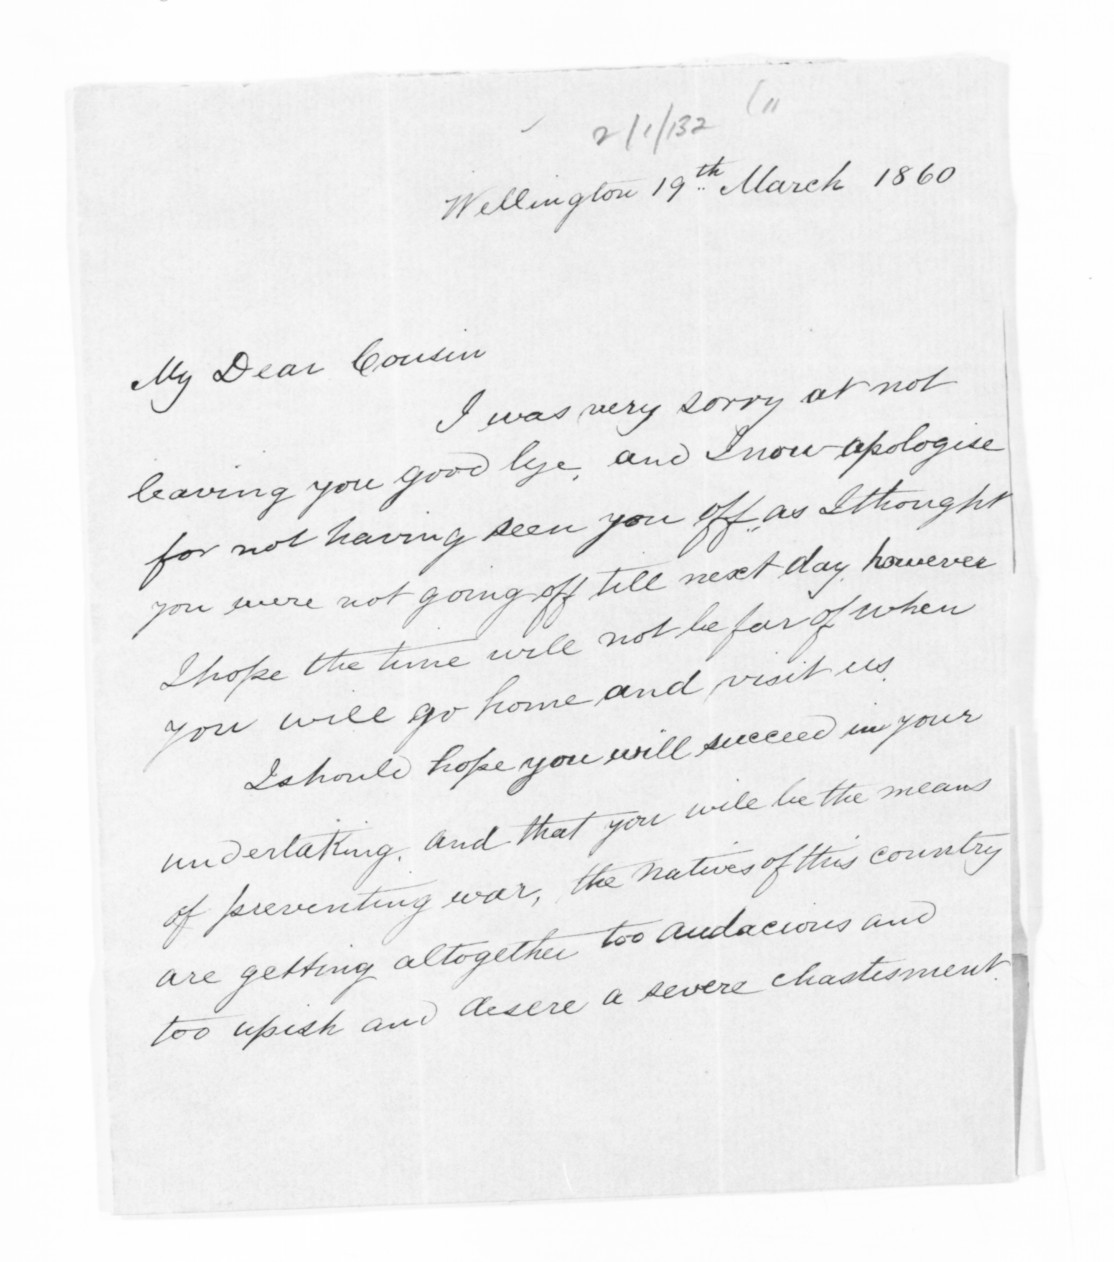 2/1/132 (11
Wellington 19th March 1860
My Dear Cousin
I was very sorry at not
leaving you good bye, and I now apologise
for not having seen you off, as I thought
you were not going off till next day, however
I hope the time will not be far of when
you will go home and visit us.
I should hope you will succeed in your
undertaking, and that you will be the means
of preventing war, the natives of this country
are getting altogether too audacious and
too upish and desere a severe chastisment.